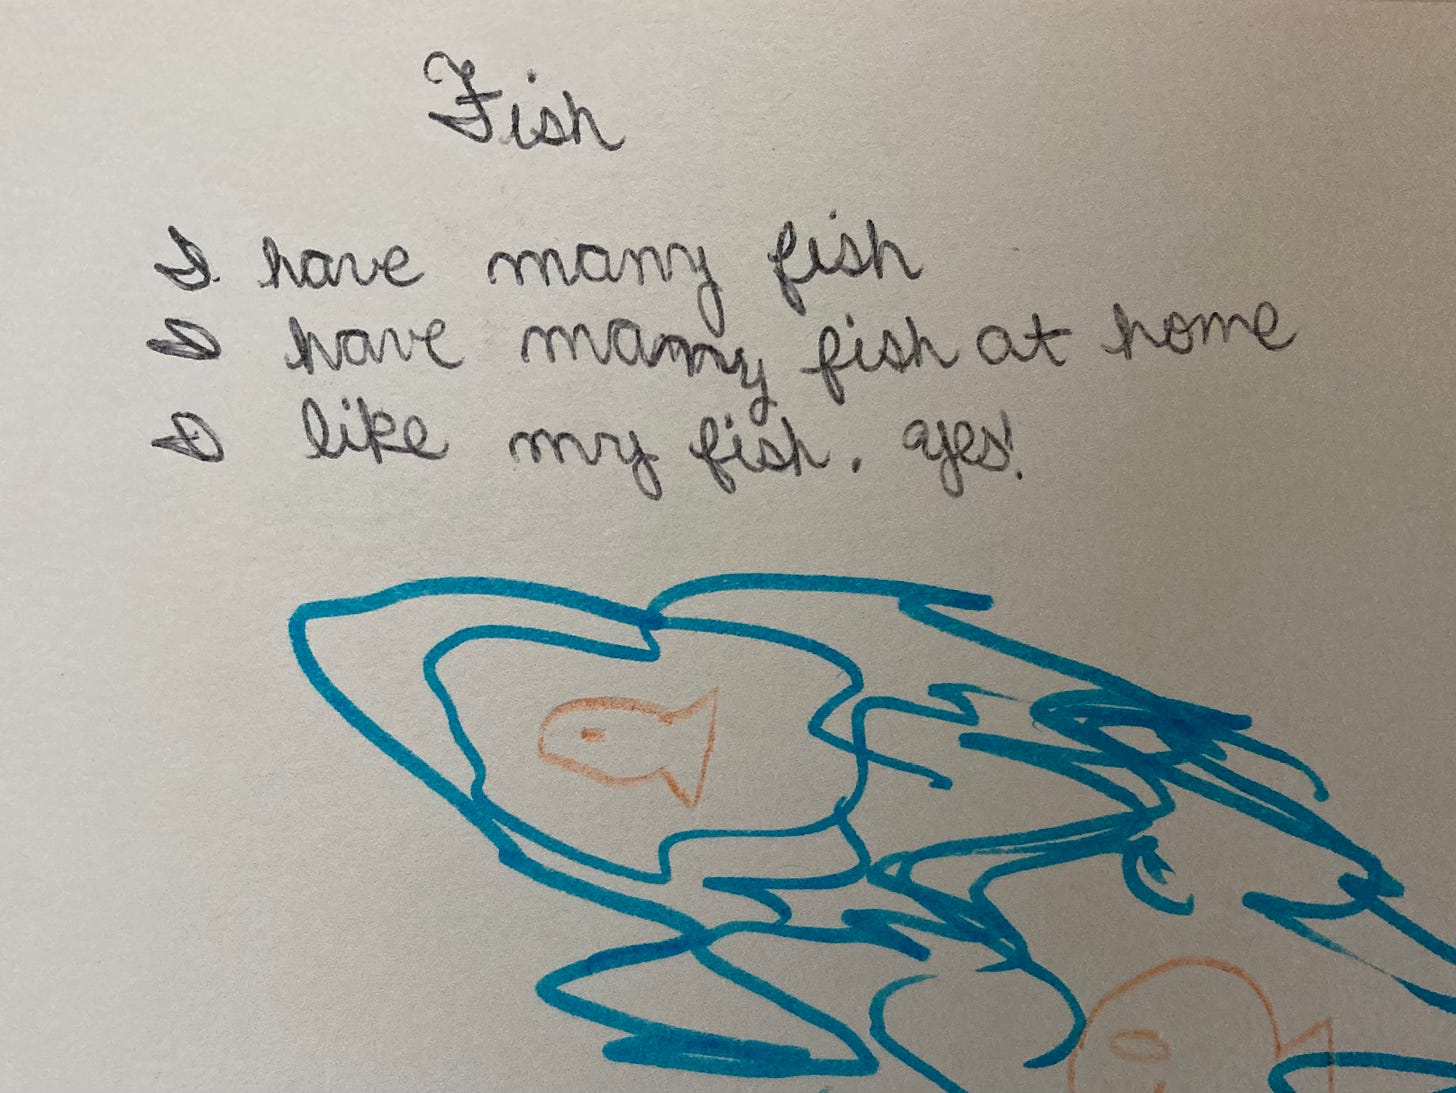 Fish
I have many fish
I have many fish at home
I like my fish. yes!